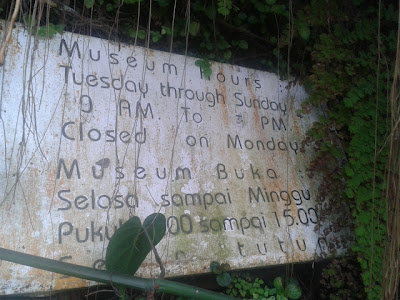 Museum Hours :
Tuesday through Sunday
9 AM. To 3 PM.
Closed on Monday.
Museum Buka :
Selasa sampai Minggu
Pukul 00 sampai 15.00
tutup